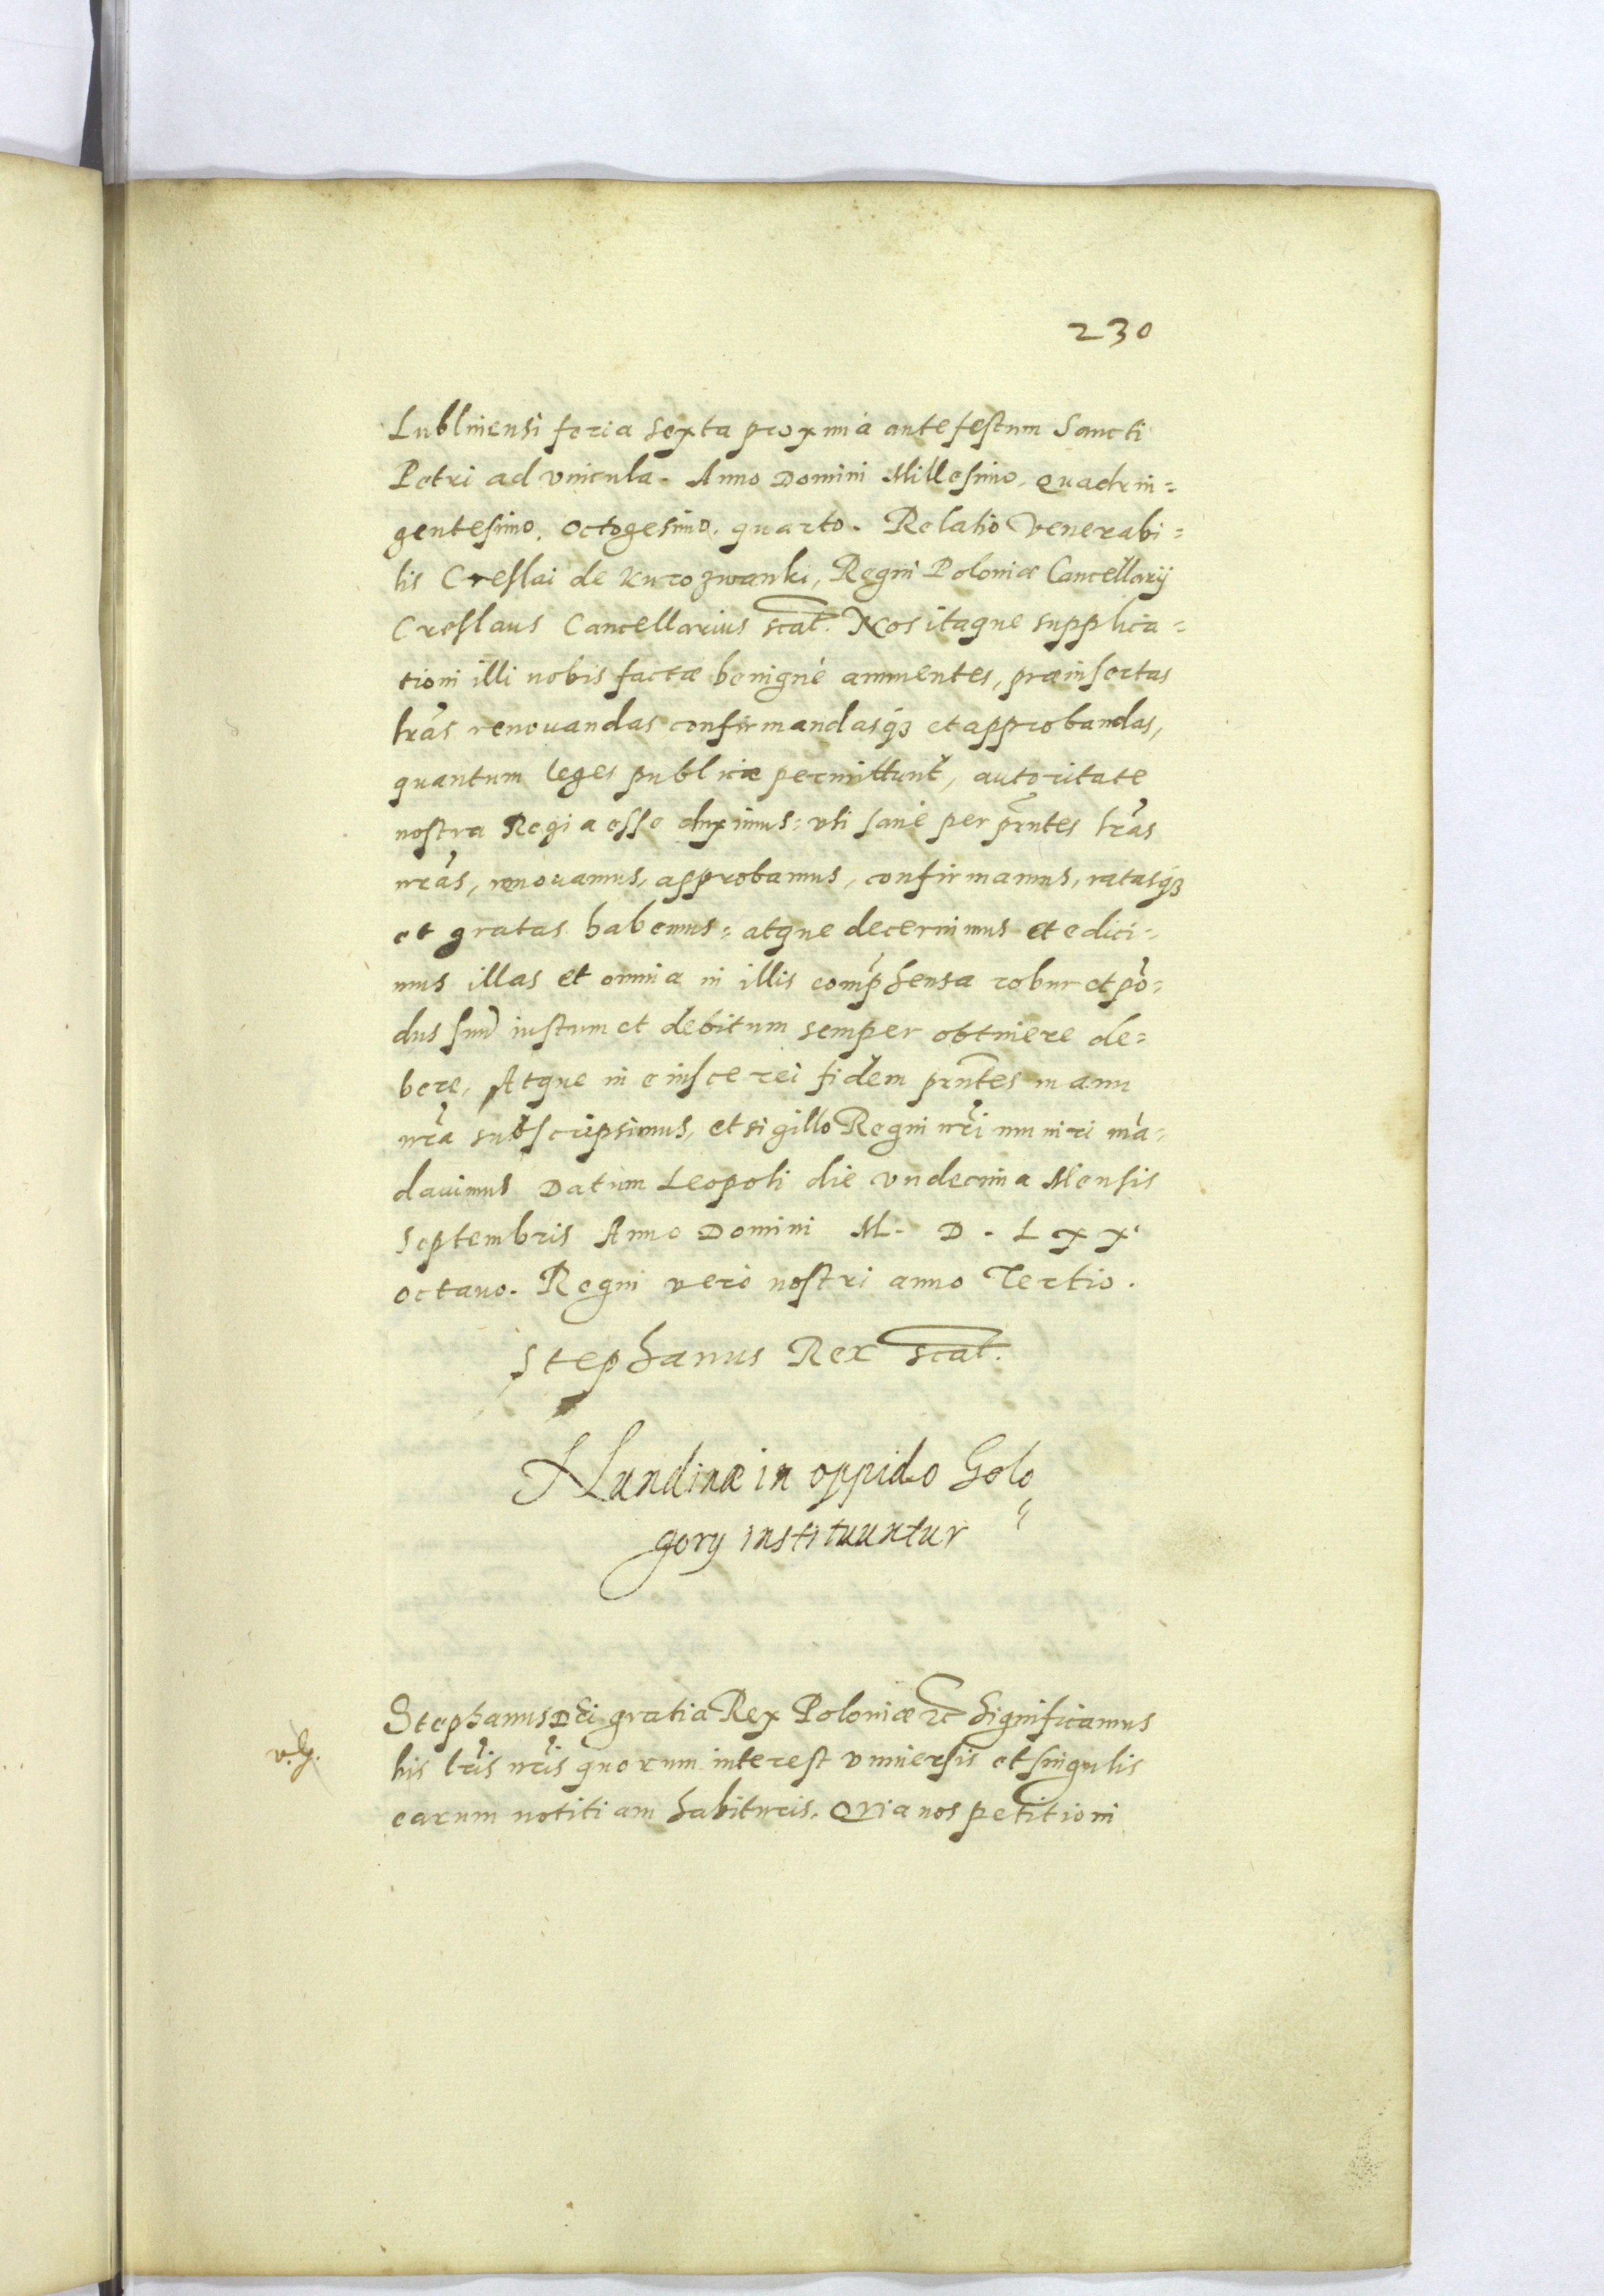 230
Lublinensi feria sexta proxima ante festum Sancti
Petri ad vincula. Anno Domini Millesimo. quadrin=
gentesimo. octogesimo. quarto. Relatio Venerabi=
lis Creslai de Kurozwanki, Regni Poloniæ Cancellarij
Creslaus Cancellarius scãt. Nos itaque supplica=
tioni illi nobis factæ benignè annuentes, præinsertas
lrãs renouandas confirmandasq3 et approbandas,
quantum leges publicæ permittunt, autoritate
nostra Regia esse duximus: vti sanè per prñtes lrãs
nrãs, renouamus, approbamus, confirmamus, ratasq3
et gratas habemus: atque decernimus et edici=
mus illas et omnia in illis comp̃hensa robur et põ=
dus suũ iustum et debitum semper obtinere de=
bere, Atque in eiusce rei fidem prñtes manu
nrã subscripsimus, et sigillo Regni nrĩ muniri mã=
dauimus Datum Leopoli die vndecima Mensis
Septembris Anno Domini M. D. L X X.
octauo. Regni verò nostri anno Tertio.
Stephanus Rex scãt.
Nundinæ in oppido Golo
gory instituuntur
Stephanus Dei gratia Rex Poloniæ &c Significamus
his lrĩs nrĩs quorum interest vniuersis et singulis
earum notitiam habituris. Quia nos petitioni